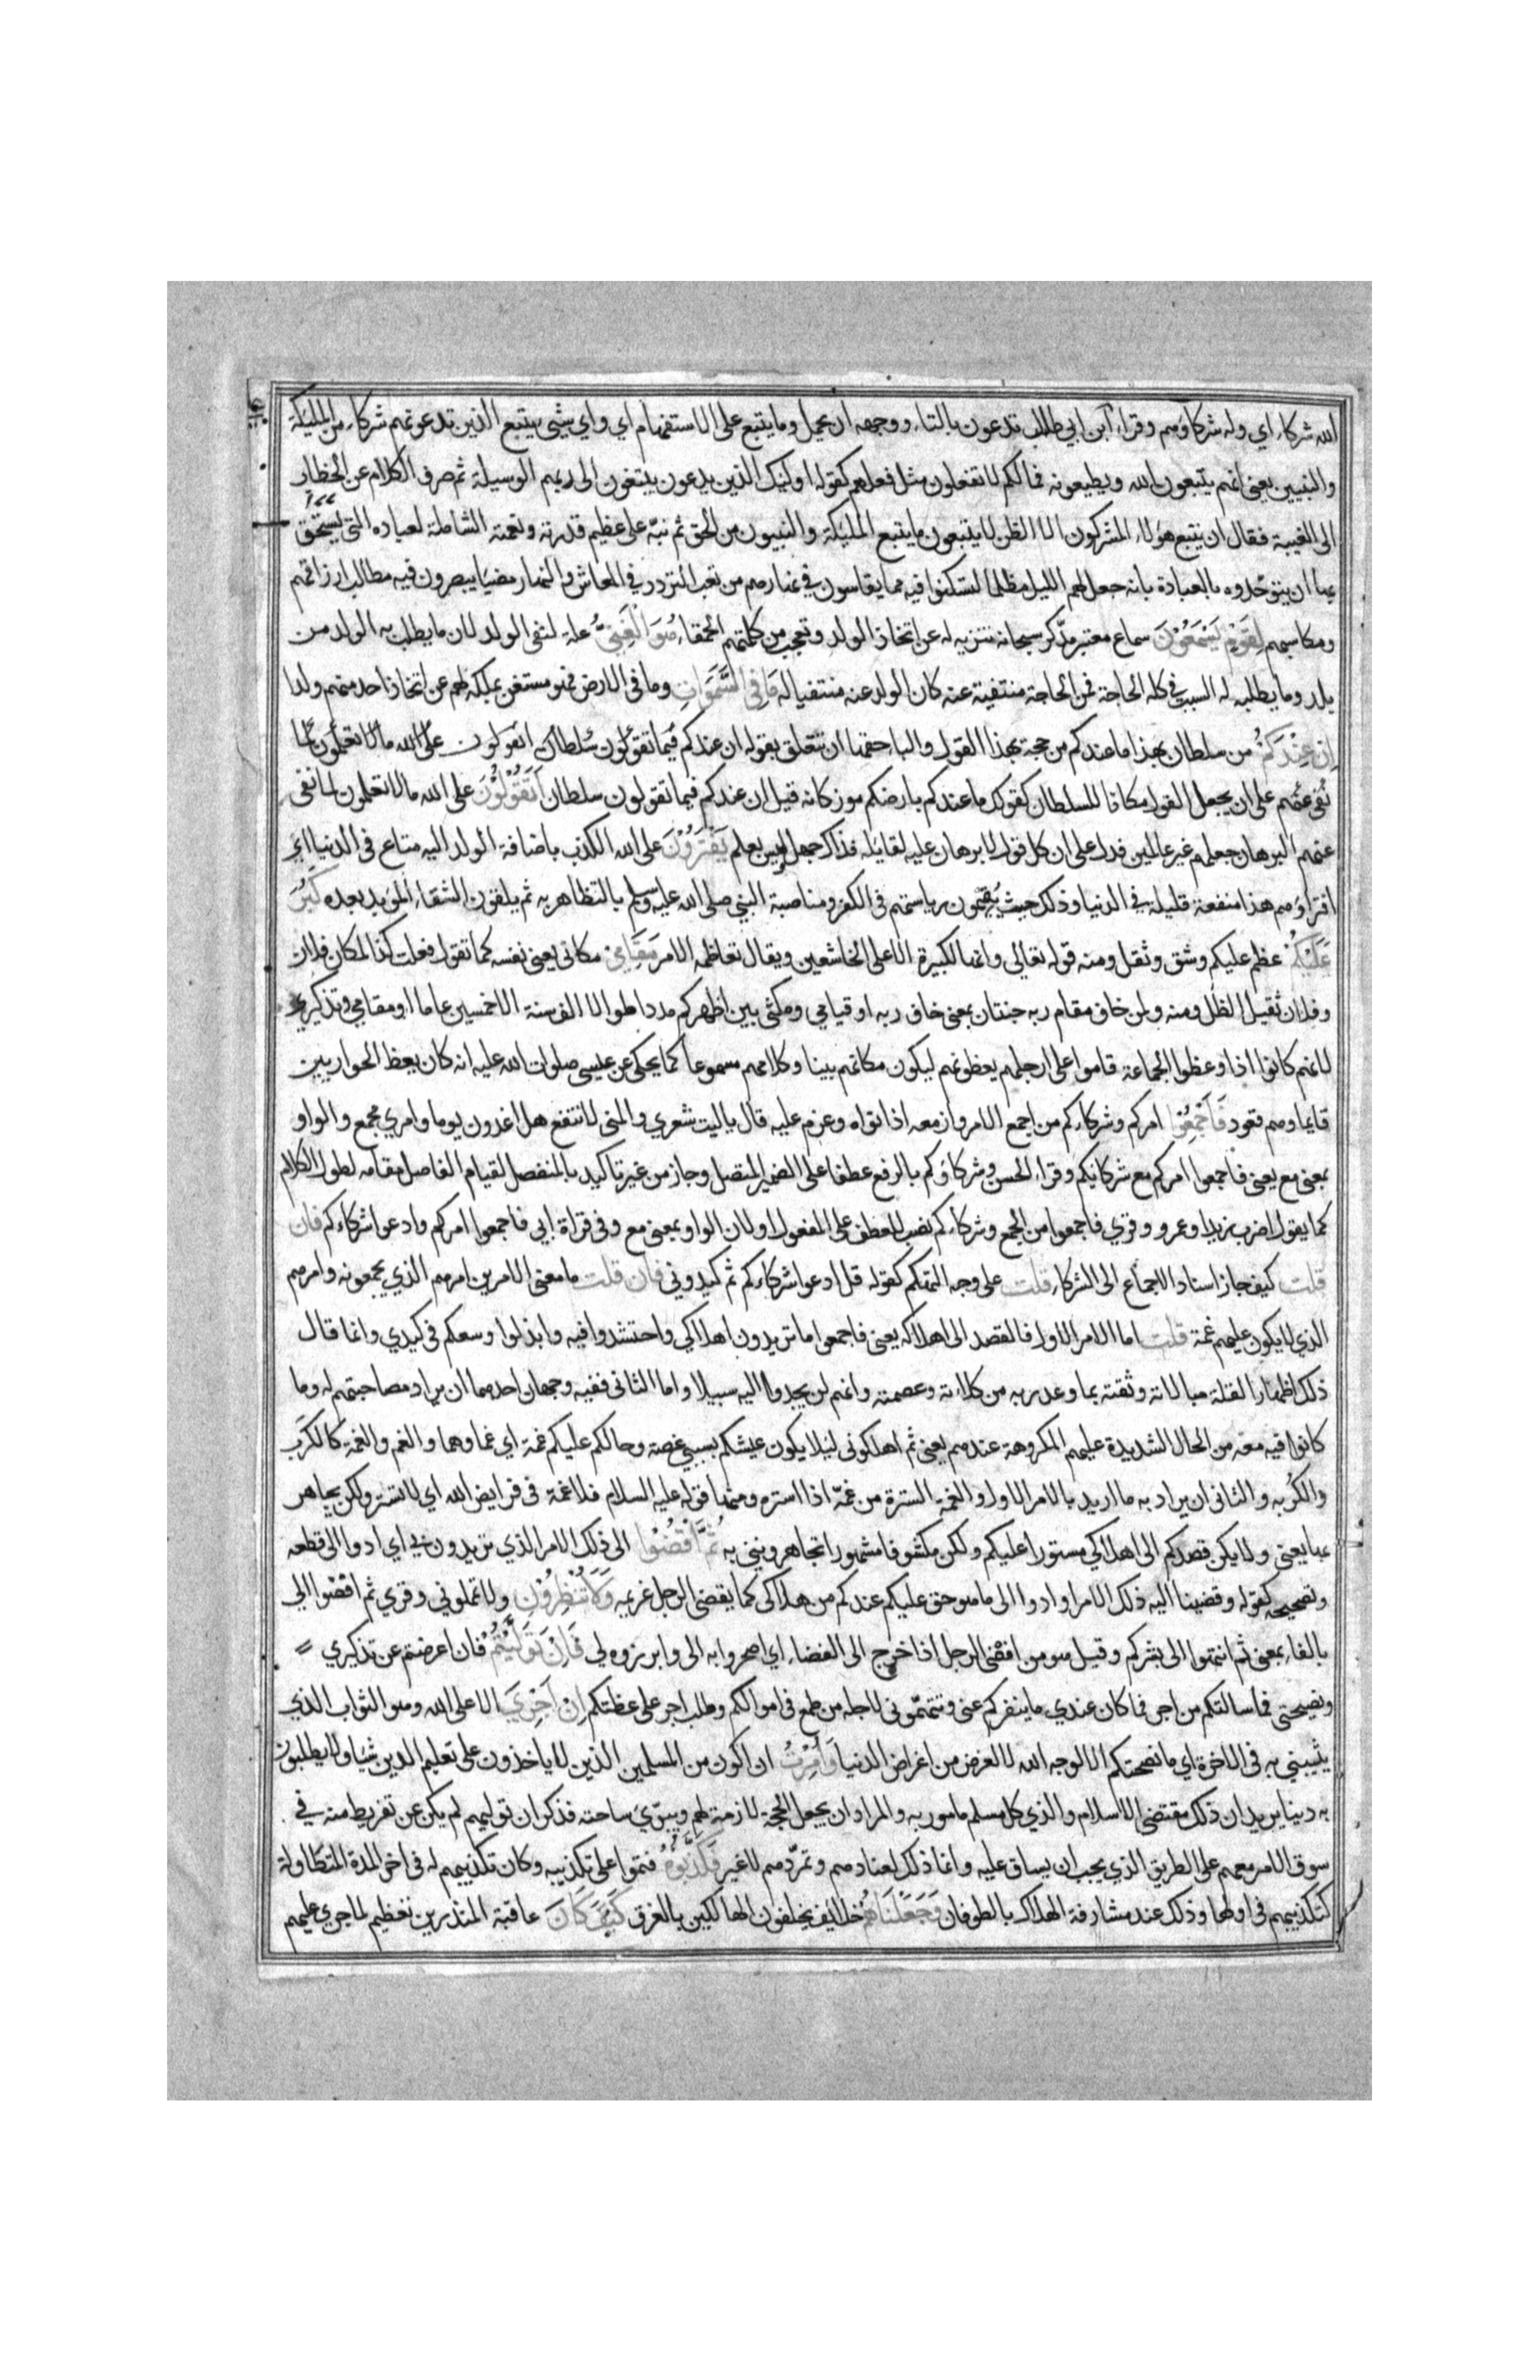 الله شركاء اي وله شركاؤهم وقراء ابن ابي طالب تدعون بالتاء ووجهه ان يحمل وما يتبع على الاستفهام اي واي شيئ يتبع الذين تدعونهم شركاء من المليكة
والنبيين يعني انهم يتبعون الله ويطيعونه فما لكم لا تفعلون مثل فعلهم كقوله اوليك الذين يدعون يبتغون الى ربهم الوسيلة ثم صرف الكلام عن الخطاب
الى الغيبة فقال ان يتبع هؤلاء المشركون الا الظن لا يتبعون ما يتبع المليكة والنبيون من الحق ثم نبه على عظيم قدرته ونعمته الشاملة لعباده التي يستحق
بها ان يوحدوه بالعبادة بانه جعل لهم الليل مظلما لتسكنوا فيه مما يقاسون في نهارهم من تعب التردد في المعاش والنهار مضيا يبصرون فيه مطالب ارزاقهم
ومكاسبهم لقوم يسمعون سماع معتبر مذكر سبحانه تنزيه له عن اتخاذ الولد وتعجب من كلمتهم الحمقاء هو الغني علة لنفي الولد لان ما يطلب به الولد من
يلد وما يطلبه له السبب في كله الحاجة فمن الحاجة منتفية عنه كان الولد عنه منتفيا له ما في السموات وما في الارض فهو مستغن بملكه لهم عن اتخاذ احد منهم ولدا
ان عندكم من سلطان بهذا ما عندكم من حجة بهذا القول والبا حقها ان تتعلق بقوله ان عندكم فيما تقولون سلطان اتقولون على الله ما لا تعلمون لما
نفى عنهم على ان يجعل القول مكانا للسلطان كقولك ما عندكم بارضكم موز كانه قيل ان عندكم فيما تقولون سلطان اتقولون على الله ما لا تعلمون لما نفى
عنهم البرهان جعلهم غير عالمين فدل على ان كل قول لا برهان عليه لقايله فذاك جهل ليس بعلم يفترون على الله الكذب باضافة الولد اليه متاع في الدنيا اي
افتراؤهم هذا منفعة قليلة في الدنيا وذلك حيث يقيمون رياستهم في الكفر ومناصبة النبي صلى الله عليه وسلم بالتظاهر به ثم يلقون الشقاء المؤيد بعده كبر
عليكم عظم عليكم وشق وثقل ومنه قوله تعالى وانها لكبيرة الا على الخاشعين ويقال تعاظمه الامر مقامي مكاني يعني نفسه كما تقول فعلت كذا لمكان فلان
وفلان ثقيل الظل ومنه ولمن خاف مقام ربه جنتان بمعنى خاف ربه او قيامي ومكثي بين اظهركم مددا طوالا الف سنة الا خمسين عاما او مقامي وتذكيري
لانهم كانوا اذا وعظوا الجماعة قاموا على ارجلهم يعظونهم ليكون مكانهم بينا وكلامهم مسموعا كما يحكى عن عيسى صلوات الله عليه انه كان يعظ الحواريين
قايما وهم قعود فاجمعوا امركم وشركاءكم من اجمع الامر وازمعه اذا نواه وعزم عليه قال يا ليت شعري والمنى لا تنفع هل اغدون يوما وامري مجمع والواو
بمعنى مع يعني فاجمعوا امركم مع شركائكم وقراء الحسن وشركاؤكم بالرفع عطفا على الضمير المتصل وجاز من غير تاكيد بالمنفصل لقيام الفاصل مقامه لطول الكلام
كما يقول اضرب زيدا وعمرو وقرى فاجمعوا من الجمع وشركاءكم نصب للعطف على المفعول او لان الواو بمعنى مع وفي قراة ابي فاجمعوا امركم وادعوا شركاءكم فان
قلت كيف جاز اسناد الاجماع الى الشركاء قلت على وجه التهكم كقوله قل ادعوا شركاءكم ثم كيدوني فان قلت ما معنى الامرين امرهم الذي يجمعونه وامرهم
الذي لا يكون عليهم غمة قلت اما الامر الاول فالقصد الى اهلاكه يعني فاجمعوا ما تريدون اهلاكي واحتشدوا فيه وابذلوا وسعكم في كيدي وانما قال
ذلك اظهارا لقلة مبالاته وثقته بما وعد ربه من كلاءته وعصمته وانهم لن يجدوا اليه سبيلا واما الثاني ففيه وجهان احدهما ان يراد مصاحبتهم له وما
كانوا فيه معه من الحال الشديدة عليهم المكروهة عندهم يعني ثم اهلكوني ليلا يكون عيشكم بسببي غصة وحالكم عليكم غمة اي غما وهما والغم والغمة كالكرب
والكربه والثاني ان يراد به ما اريد بالامر الاول والغمة السترة من غمه اذا استره ومنها قوله عليه السلام فلا غمة في فرايض الله اي لا تستر ولكن يجاهر
بها يعني ولا يكن قصدكم الى اهلاكي مستورا عليكم ولكن مكشوفا مشهورا تجاهرونني به ثم اقضوا الى ذلك الامر الذي تريدون بي اي ادوا الى قطعه
وتصحيحه كقوله وقضينا اليه ذلك الامر او ادوا الى ما هو حق عليكم عندكم من هلاكى كما يقضي الرجل غريمه ولا تنظرون ولا تمهلوني وقرى ثم افضوا الي
بالفاء بمعنى ثم انتهوا الى بشركم وقيل هو من افضى الرجل اذا خرج الى الفضاء اي اصحروا به الى وابرزوه لي فان توليتم فان اعرضتم عن تذكيري
ونصيحتي فما سالتكم من اجر فما كان عندي ما ينفركم عني وتتهموني لاجله من طمع في اموالكم وطلب اجر على عظتكم ان اجري الا على الله وهو الثواب الذي
يثيبني به في الاخرة اي ما نصحتكم الا لوجه الله لا لغرض من اغراض الدنيا وامرت ان اكون من المسلمين الذين لا ياخذون على تعليم الدين شيا ولا يطلبون
به دنيا يريد ان ذلك مقتضى الاسلام والذي كل مسلم مامور به والمراد ان يجعل الحجة لازمة لهم ويبرئ ساحته فذكر ان توليهم لم يكن عن تفريط منه في
سوق الامر معهم على الطريق الذي يجب ان يساق عليه وانما ذلك لعنادهم وتمردهم لا غير فكذبوه فتموا على تكذيبه وكان تكذيبهم له في اخر المدة المتطاولة
كتكذيبهم في اولها وذلك عند مشارفة الهلاك بالطوفان وجعلناهم خلايف يخلفون الهالكين بالغرق كيف كان عاقبة المنذرين تعظيم لما جرى عليهم